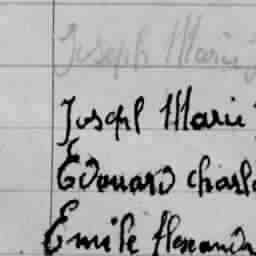 Joseph Marie J
Joseph Marie
Edouard Charl
Emile Alexandr